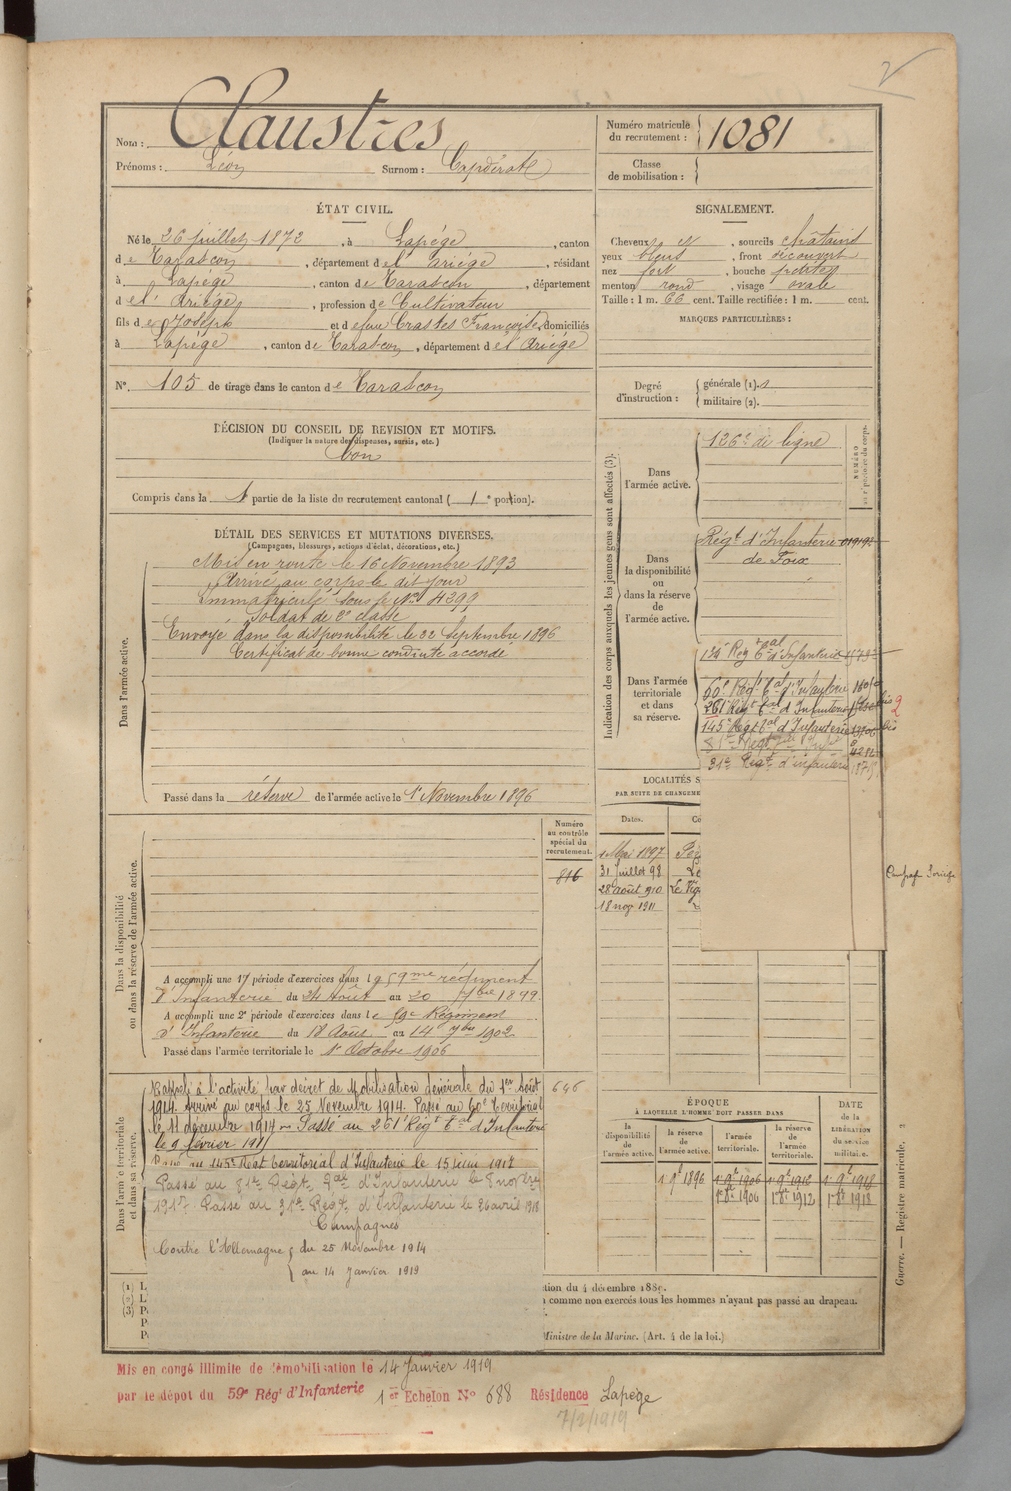 2
Claustres
Nom :
Prénoms : Léon Surnom : Capdéroté
Numéro matricule du recrutement : 1081
Classe de mobilisation :
ÉTAT CIVIL.
Né le 26 juillet 1872, à Lapége, canton
de Tarascon, département de l'Ariége, résidant
à Lapége, canton de Tarascon, département
de l'Ariége, profession de Cultivateur
fils de Joseph et de feue Crastes Françoise, domiciliés
à Lapége, canton de Tarascon, département de l'Ariége
N° 105 de tirage dans le canton de Tarascon
SIGNALEMENT.
Cheveux et, sourcils châtains
yeux bleus, front découvert
nez fort, bouche petite
menton rond, visage ovale
Taille : 1 m. 66 cent. Taille rectifiée : 1 m. cent.
MARQUES PARTICULIÈRES :
Degré d'instruction : générale (1).
militaire (2).
DÉCISION DU CONSEIL DE REVISION ET MOTIFS.
(Indiquer la nature des dispenses, sursis, etc.)
bon
Compris dans la 1 partie de la liste du recrutement cantonal ( 1e portion).
DÉTAIL DES SERVICES ET MUTATIONS DIVERSES.
(Campagnes, blessures, actions d'éclat, décorations, etc.)
Dans l'armée active.
Mis en route le 16 Novembre 1893
Arrivé au corps le dit jour
Immatriculé sous le N° 4299
Soldat de 2e classe
Envoyé dans la disponibilité le 22 Septembre 1896
Certificat de bonne conduite accordé
Passé dans la réserve de l'armée active le 1r Novembre 1896
Indication des corps auxquels les jeunes gens sont affectés (3).
Dans l'armée active.
126e de ligne
Dans la disponibilité ou dans la réserve de l'armée active.
Régt d'Infanterie
de Foix
Dans l'armée territoriale et dans sa réserve.
60e Régt tal d'Infanterie
261e Régt tal d'Infanterie
145e Régt tal d'Infanterie
31e Régt d'infanterie
LOCALITÉS S
PAR SUITE DE CHANGEME
Dates.
1 Mai 1897
31 Juillet 98
28 août 910
18 nov 1911
Dans la disponibilité ou dans la réserve de l'armée active.
Numéro au contrôle spécial du recrutement.
816
A accompli une 1e période d'exercices dans le 59me régiment
d'Infanterie du 24 Août au 20 7bre 1899
A accompli une 2e période d'exercices dans le 59e Régiment
d'Infanterie du 18 Août au 14 7bre 1902
Passé dans l'armée territoriale le 1r Octobre 1906
Dans l'armée territoriale et dans sa réserve.
646
Rappelé à l'activité par décret de Mobilisation Générale du 1er Août
1914. Arrivé au corps le 25 Novembre 1914. Passé au 60e Territorial
le 11 décembre 1914 Passé au 261e Régt tal d'Infanterie
le 9 février 191
Passé au 145e Régt territorial d'Infanterie le 15 juin 1917
Passé au 81e Régt tal d'Infanterie le
1917. Passé au 31e Régt d'Infanterie le 26 avril 1918
Campagnes
Contre l'Allemagne du 25 Novembre 1914
au 14 Janvier 1919
ÉPOQUE
À LAQUELLE L'HOMME DOIT PASSER DANS
la disponibilité de l'armée active.
la réserve de l'armée active.
l'armée territoriale.
la réserve de l'armée territoriale.
DATE de la LIBÉRATION du service militaire.
1 9e 1896
1 9e 1906
1 9e 1912
1 9e 1918
1r 8e 1906
1r 8e 1912
1r 8e 1918
(1) L
(2) L'
(3) P.
P.
tion du 4 décembre 1889.
comme non exercés tous les hommes n'ayant pas passé au drapeau.
Ministre de la Marine. (Art. 4 de la loi.)
Guerre. — Registre matricule. 2
Mis en congé illimité de démobilisation le 14 Janvier 1919
par le dépôt du 59e Régt d'Infanterie 1er Echelon N° 688 Résidence Lapège
7/2/1919